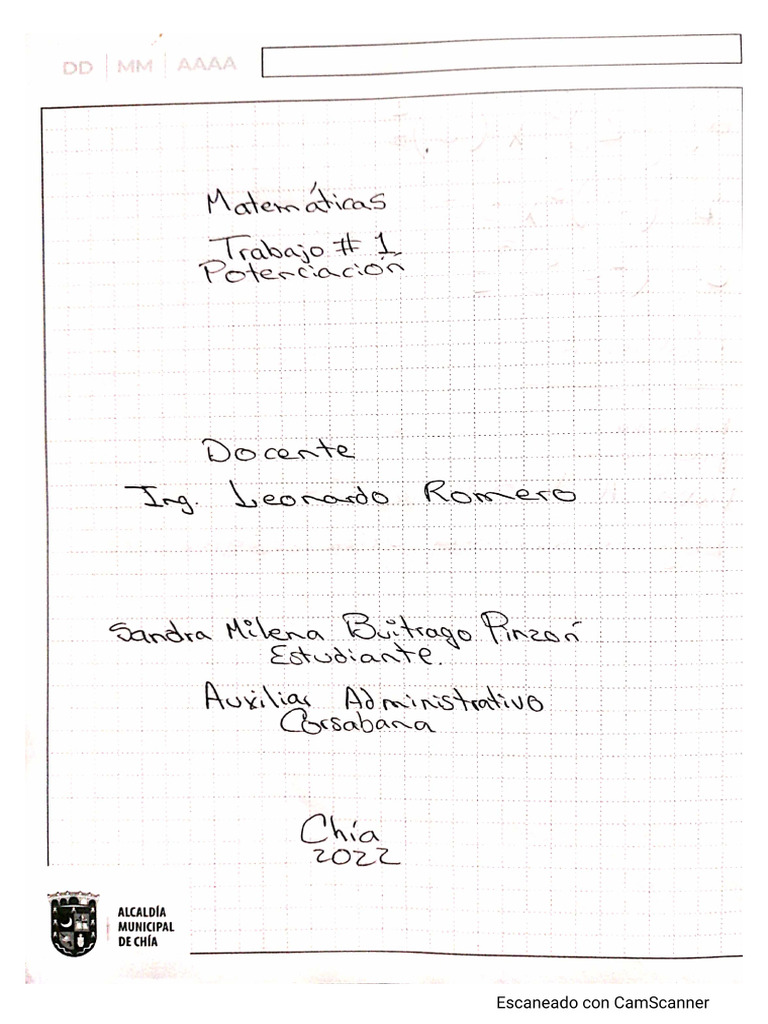 DD | MM | AAAA
Matemáticas
Trabajo # 1
Potenciación
Docente
Ing. Leonardo Romero
Sandra Milena Buitrago Pinzón
Estudiante.
Auxiliar Administrativo
Corsabana
Chía
2022
ALCALDÍA
MUNICIPAL
DE CHÍA
Escaneado con CamScanner